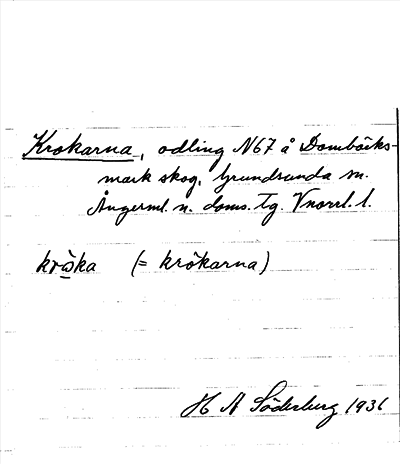 Krokarna, odling N67 å Dombäcks-
mark skog, Grundsunda sn.
Ångerml. n. doms. tg. Vnorrl. l.
(= krökarna)
H A Söderberg 1931